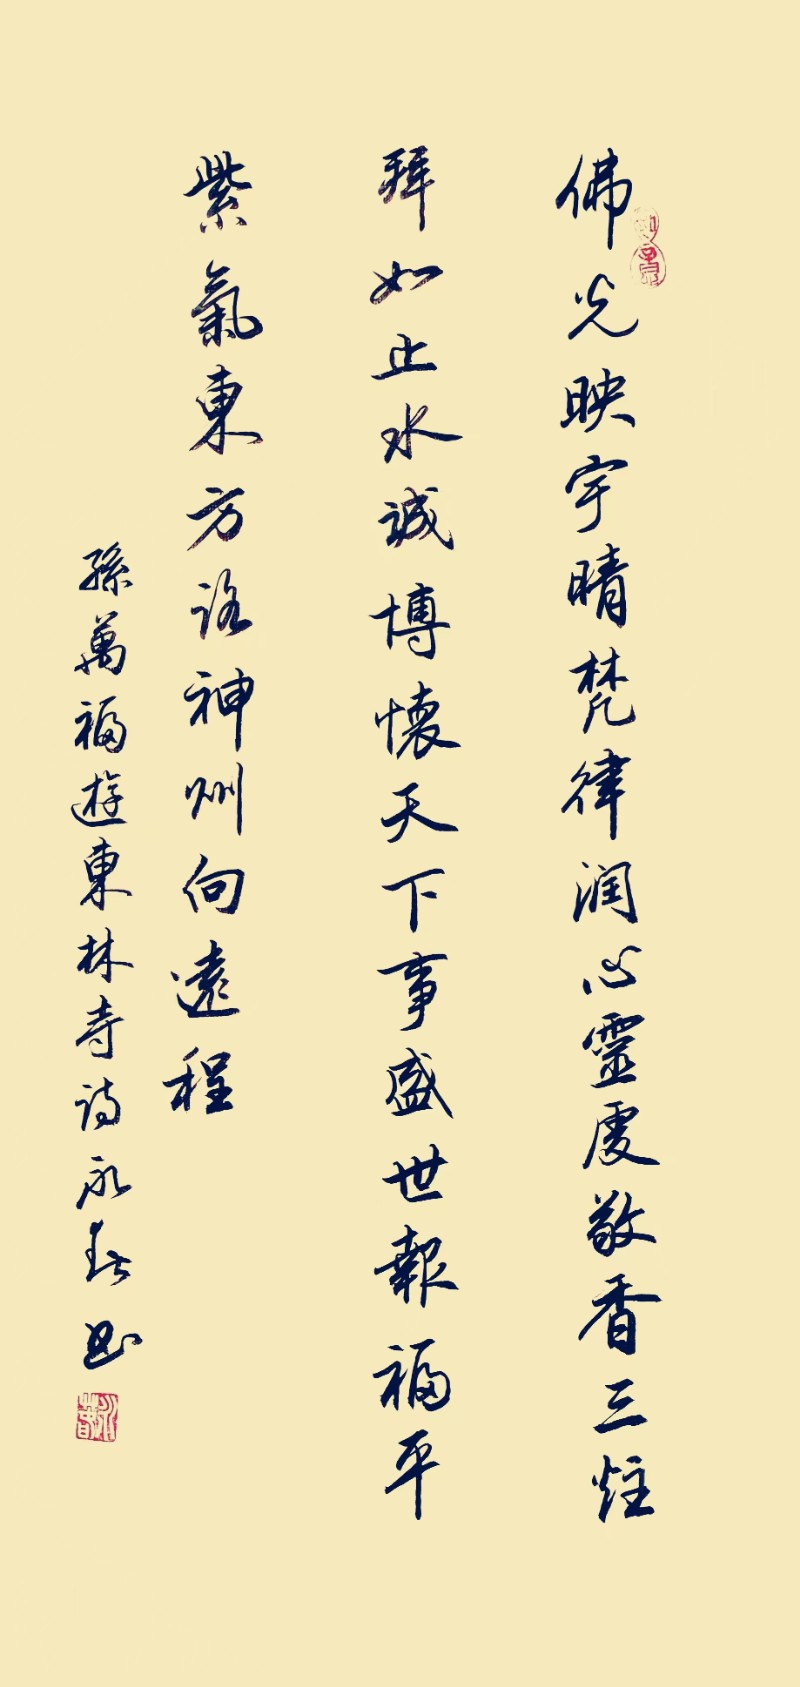 佛光映宇晴梵律润心靈虔敬香三炷
拜如止水誠博懷天下事盛世報福平
紫氣東方詺神州向遠程
孫萬福遊東林寺詩永春书
永春